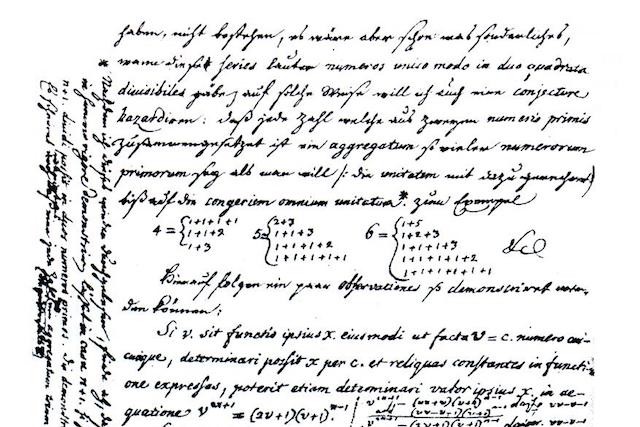 haben, nicht bestehen, es wäre aber schon was sonderliches,
wann diese series lauter numeros unico modo in duo quadrata
divisibiles gäbe, auf solche Weise will ich auch eine conjecture
hazardiren: daß jede Zahl welche aus zweyen numeris primis
zusammengesetzet ist ein aggregatum so vieler numerorum
primorum sey als man will /: die unitatem mit dazu gerechnet
biß auf die congeriem omnium unitatum* zum Exempel
4 = { 1+1+1+1
1+1+2
1+3
5 = { 2+3
1+1+3
1+1+1+2
1+1+1+1+1
6 = { 1+5
1+2+3
1+1+1+3
1+1+1+1+2
1+1+1+1+1+1
&c
Hierauf folgen ein paar observationes so demonstriret wer-
den können:
Si v. sit functio ipsius x. eiusmodi ut facta v = c. numero cui-
cunque, determinari possit x per c. et reliquas constantes in functi-
one expressas, poterit etiam determinari valor ipsius x. in ae-
quatione v²ⁿ⁺¹ = (2v+1)(v+1)ⁿ⁻¹
* Nachdem ich dieses wieder durchgelesen, finde ich, da
in summo rigore demonstriren lässet in casu n+1,
n+1 dividi possit in duos numeros primos. Die demonst